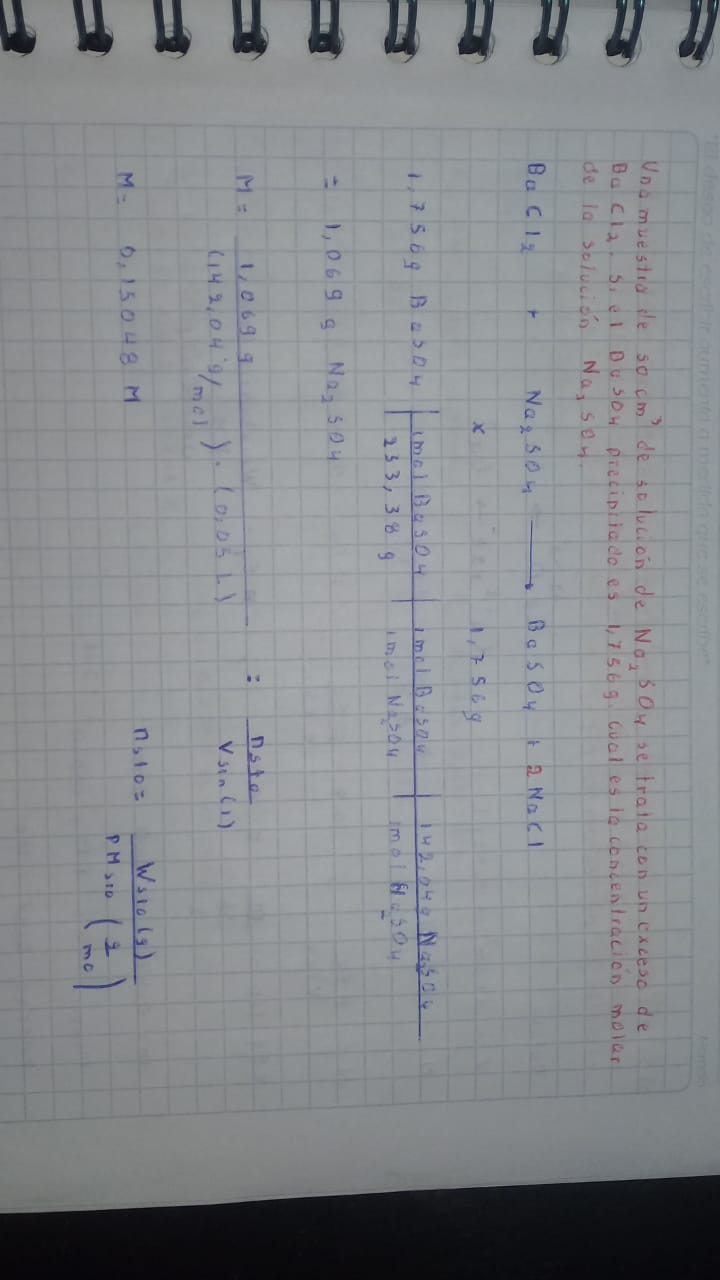 "El deseo de escribir aumenta a medida que se escribe"
Una muestra de 50 cm³ de solución de Na₂SO4 se trata con un exceso de
BaCl₂. Si el BaSO4 precipitado es 1,756g. cual es la concentración molar
de la solución Na₂SO4.
BaCl₂ + Na₂SO4 → BaSO4 + 2NaCl
x 1,756g
1,756g BaSO4 | 1mol BaSO4 | 1mol BaSO4 | 142,04g Na₂SO4
233,38g | 1mol Na₂SO4 | 1mol Na₂SO4
= 1,069g Na₂SO4
M= 1,069g = nsto
(142,04 g/mol) . (0,05 L) Vsln(l)
M= 0,15048 M nsto= Wsto(g)
PMsto (g
mo)